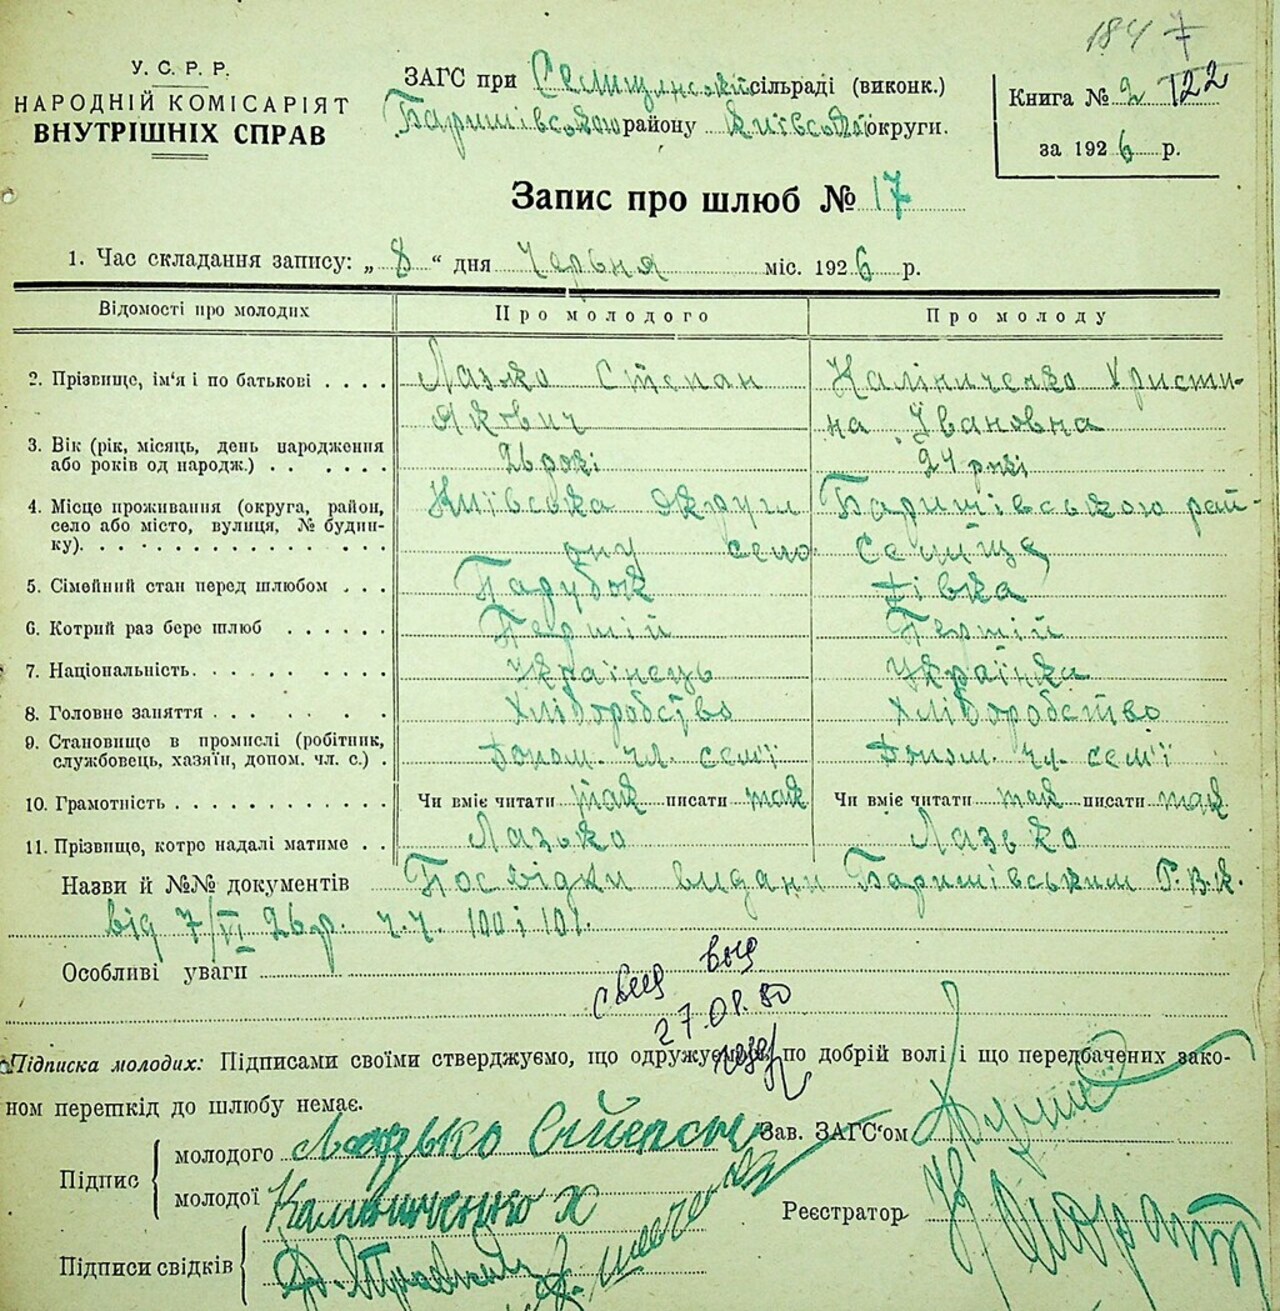 184 7
У. С. Р. Р.
НАРОДНІЙ КОМІСАРІЯТ
ВНУТРІШНІХ СПРАВ
ЗАГС при Селищянській сільраді (виконк.)
Баришівського району Київської округи.
Книга № 2 122
за 1926 р.
Запис про шлюб № 17
1. Час складання запису: „ 8 “ дня Червня міс. 1926 р.
Відомості про молодих Про молодого Про молоду
2. Прізвище, ім'я і по батькові . . . . Лазько Степан Калініченко Христи-
Якович на Івановна
3. Вік (рік, місяць, день народження
або років од народж.) . . . . . . 26 рокі 24 рокі
4. Місце проживання (округа, район, Київська Округи Баришівською рай-
село або місто, вулиця, № будин-
ку). . . . . . . . . . . . . . . ону село Селища
5. Сімейний стан перед шлюбом . . . Парубок Дівка
6. Котрий раз бере шлюб . . . . . . Перший Перший
7. Національність. . . . . . . . . . Українець Українка
8. Головне заняття . . . . . . Хліборобство Хліборобство
9. Становище в промислі (робітник,
службовець, хазяїн, допом. чл. с.) . Допом. чл. сем'ї Допом. чл. сем'ї
10. Грамотність . . . . . . . . . . . . Чи вміє читати так писати так Чи вміє читати так писати так
11. Прізвище, котре надалі матиме . . Лазько Лазько
Назви й №№ документів Посвідки видани Баришівським Р.В.К.
від 7/VI 26 р. ч.ч. 100 і 101.
Особливі уваги
27.01.80
Підписка молодих: Підписами своїми стверджуємо, що одружуємось по добрій волі і що передбачених зако-
ном перешкід до шлюбу немає.
Підпис
молодого Лазько Степан
молодої Калиниченко Х
Зав. ЗАГС'ом
Реєстратор
Підписи свідків